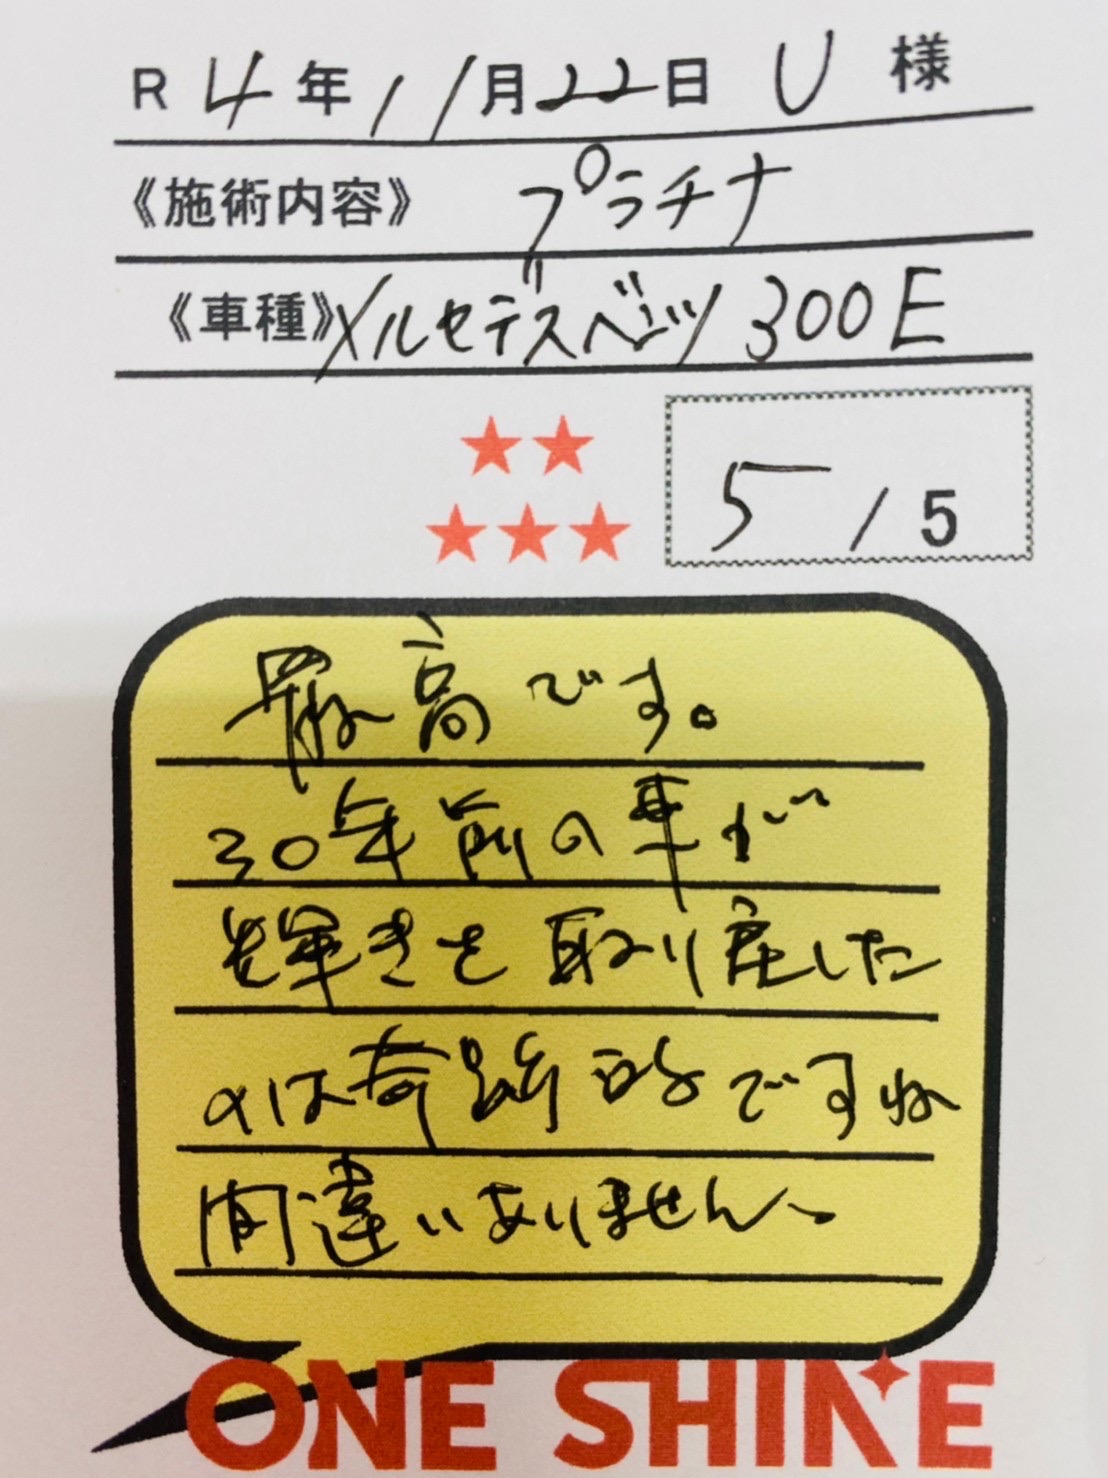 R 4年11月22日 U 様
《施術内容》 プラチナ
《車種》メルセデスベンツ 300E
★★
★★★
5/5
最高です。
30年前の車が
輝きを取り戻した
のは奇跡的ですね
間違いありません。
ONE SHINE